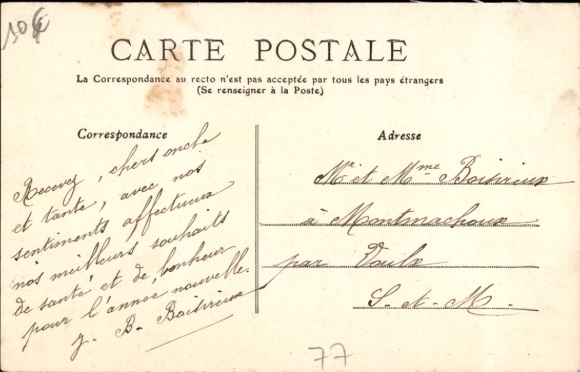 10€
CARTE POSTALE
La Correspondance au recto n'est pas acceptée par tous les pays étrangers
(Se renseigner à la Poste)
Correspondance
Recevez, chers oncle
et tante, avec nos
sentiments affectueux
nos meilleurs souhaits
de santé et de bonheur
pour l'année nouvelle.
J. B. Boisireux
Adresse
Mr et Mme Boisireux
à Montmachoux
par Voulx
S.-et-M.
77